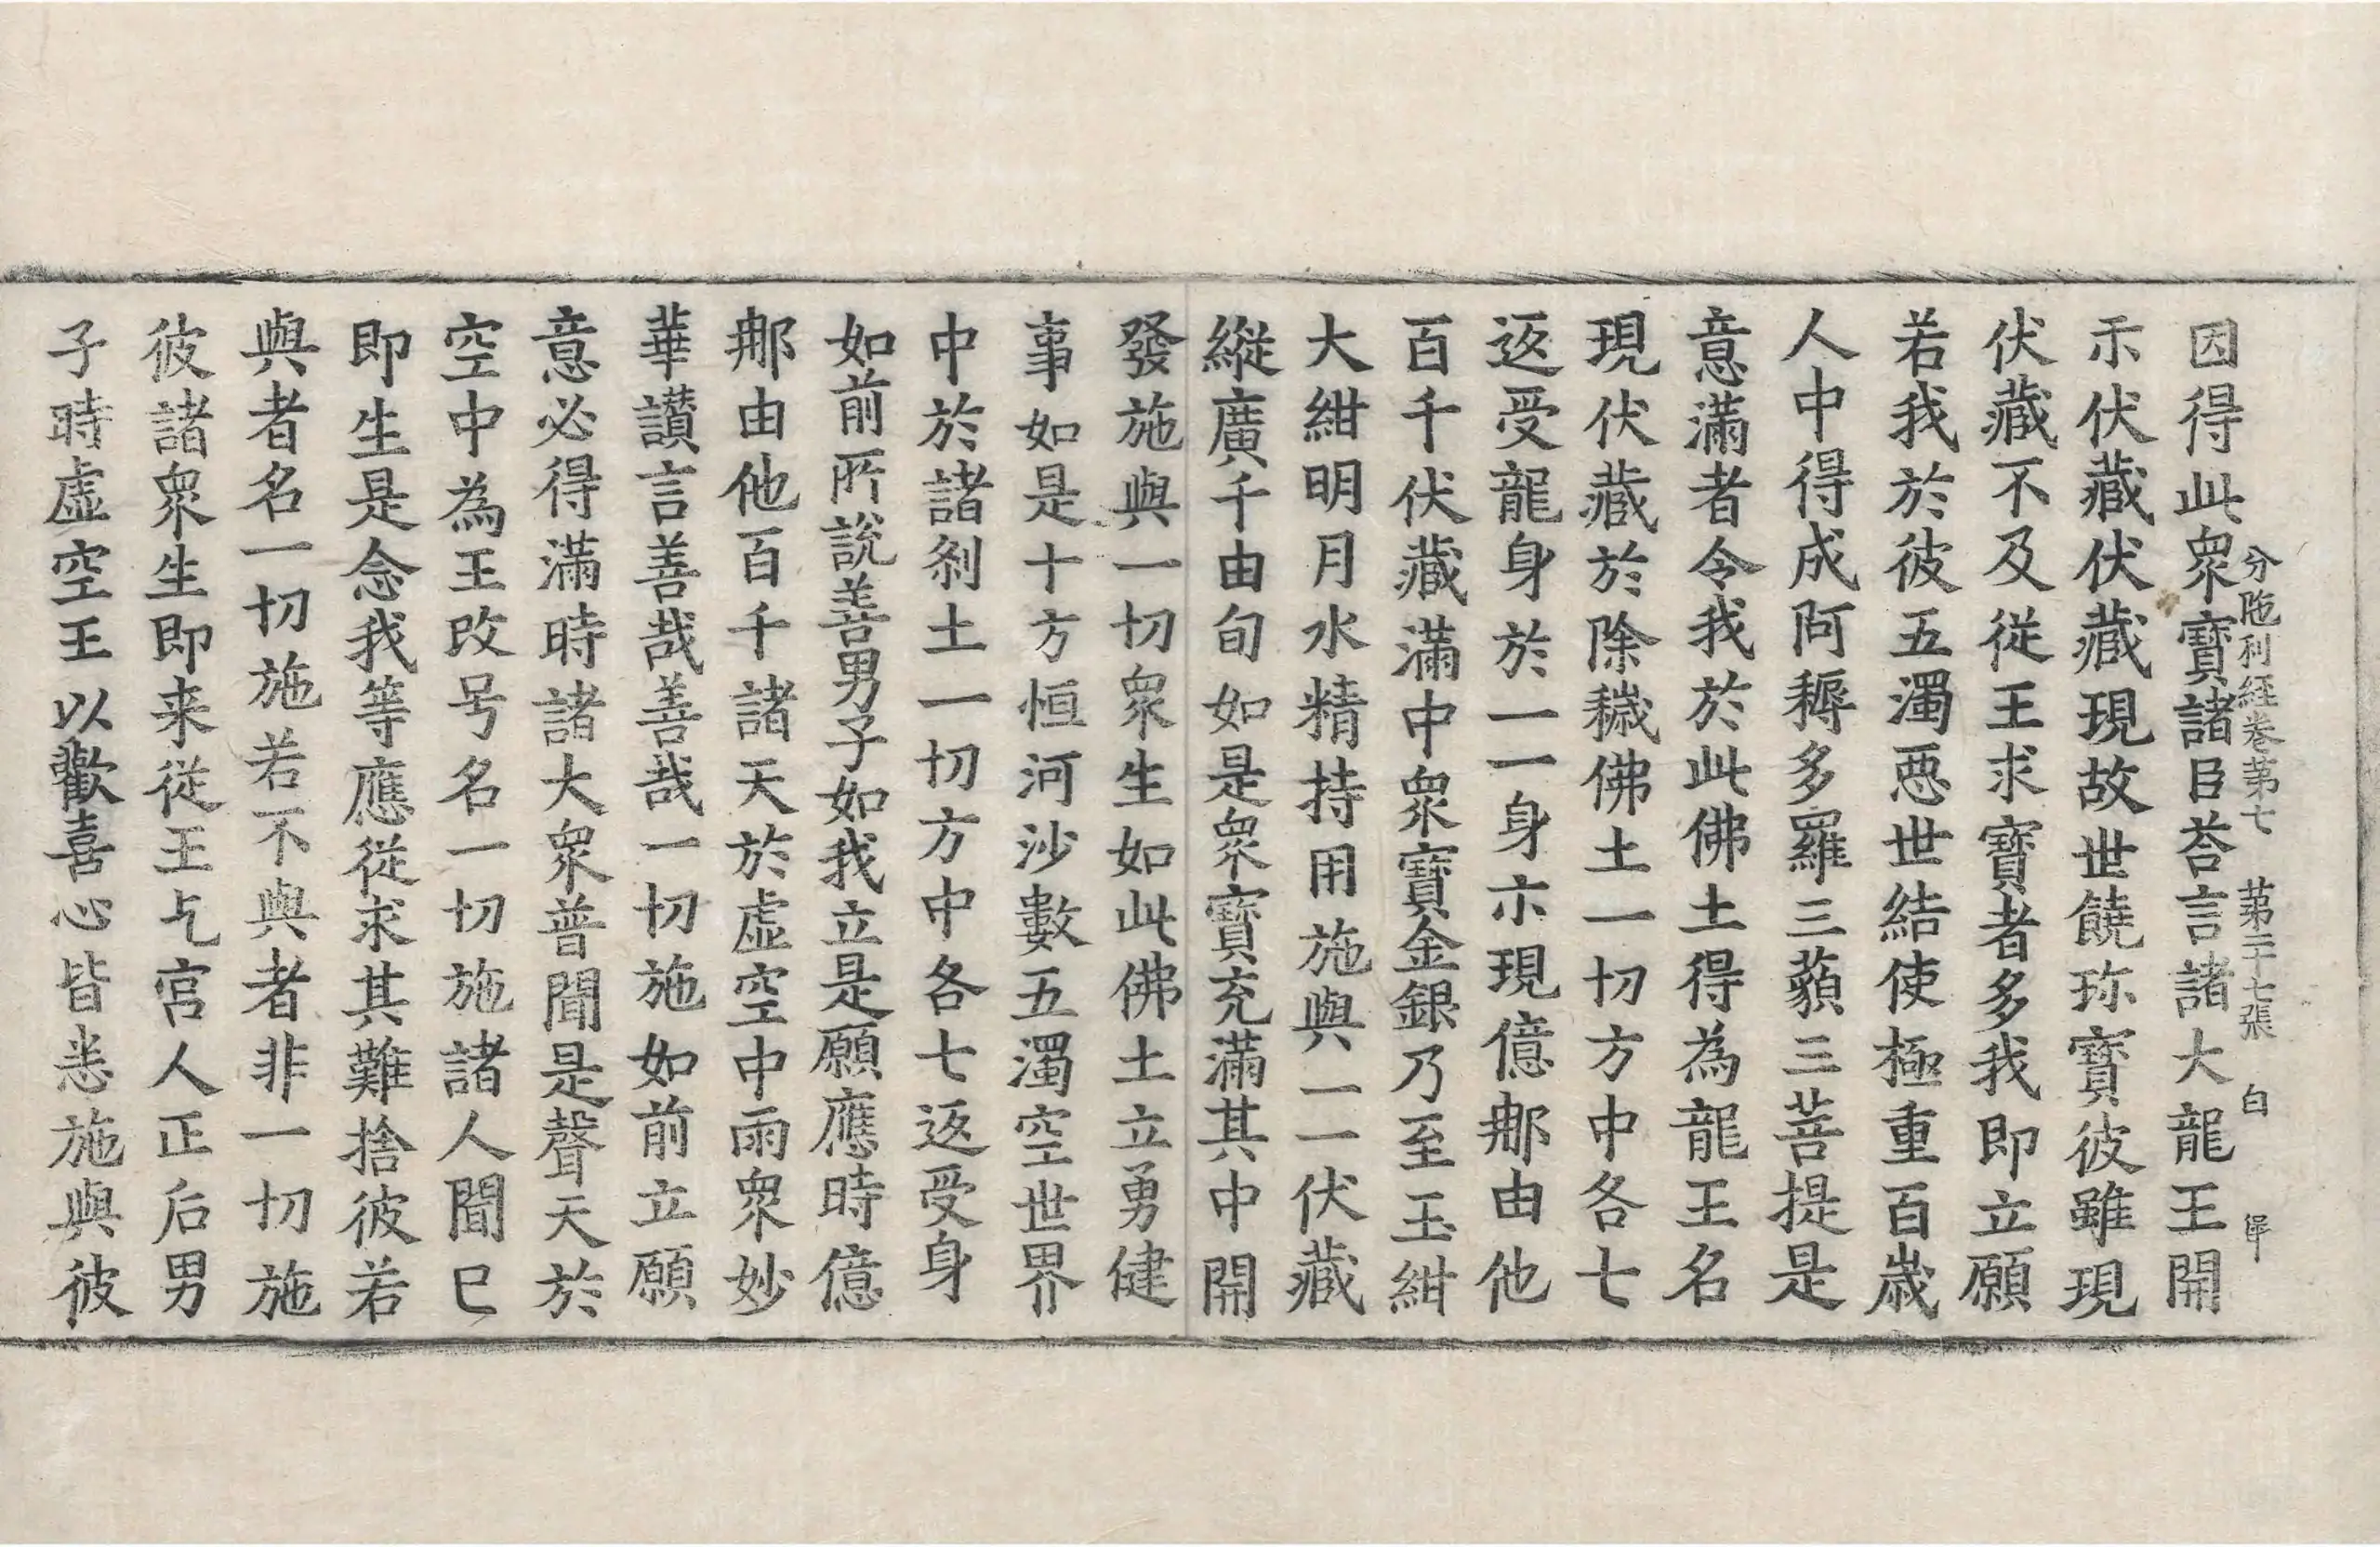 分陁利経卷第七　第二十七張　白　㞐
因得此眾寶諸臣荅言諸大龍王開
示伏藏伏藏現故世饒珎寶彼雖現
伏藏不及從王求寶者多我即立願
若我於彼五濁惡世結使極重百歲
人中得成阿耨多羅三藐三菩提是
意滿者令我於此佛土得為龍王名
現伏藏於除穢佛土一切方中各七
返受龍身於一一身亦現億那由他
百千伏藏滿中眾寶金銀乃至玉紺
大紺明月水精持用施與一一伏藏
縱廣千由旬如是眾寶充滿其中開
發施與一切眾生如此佛土立勇健
事如是十方恒河沙數五濁空世界
中於諸剎土一切方中各七返受身
如前所說善男子如我立是願應時億
那由他百千諸天於虛空中雨眾妙
華讚言善哉善哉一切施如前立願
意必得滿時諸大眾普聞是聲天於
空中為王改号名一切施諸人聞已
即生是念我等應從求其難捨彼若
與者名一切施若不與者非一切施
彼諸眾生即来從王乞宮人正后男
子時虛空王以歡喜心皆悉施與彼